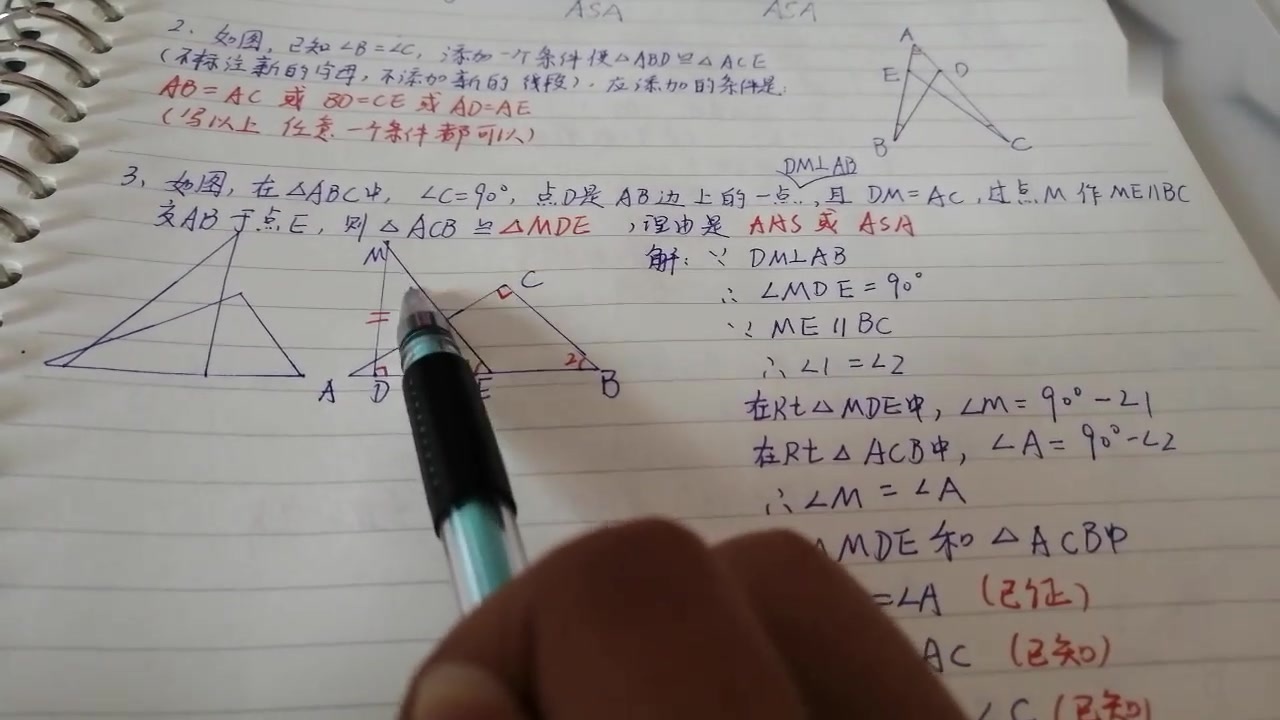 ASA ASA
2. 如图, 已知 ∠B=∠C, 添加一个条件使△ABD≌△ACE
(不标注新的字母, 不添加新的线段). 应添加的条件是:
AB=AC 或 BD=CE 或 AD=AE
(写以上任意一个条件都可以)
A
E D
B C
DM⊥AB
3、如图, 在△ABC中, ∠C=90°, 点D是AB边上的一点, 且 DM=AC, 过点M作ME∥BC
交AB于点E, 则△ACB≌△MDE, 理由是 AAS 或 ASA
M
C
2
A D E B
解: ∵ DM⊥AB
∴ ∠MDE=90°
∵ ME∥BC
∴ ∠1=∠2
在Rt△MDE中, ∠M=90°-∠1
在Rt△ACB中, ∠A=90°-∠2
∴ ∠M=∠A
△MDE和△ACB中
=∠A (已证)
AC (已知)
∠C (已知)